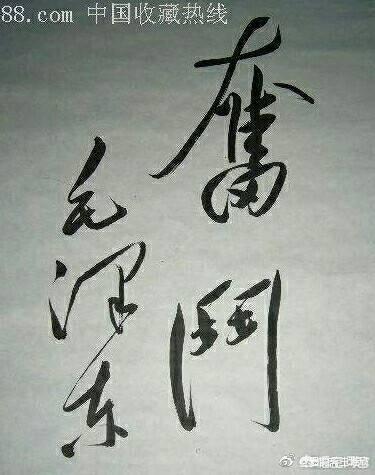 88.com 中国收藏热线
奮鬥
毛泽东